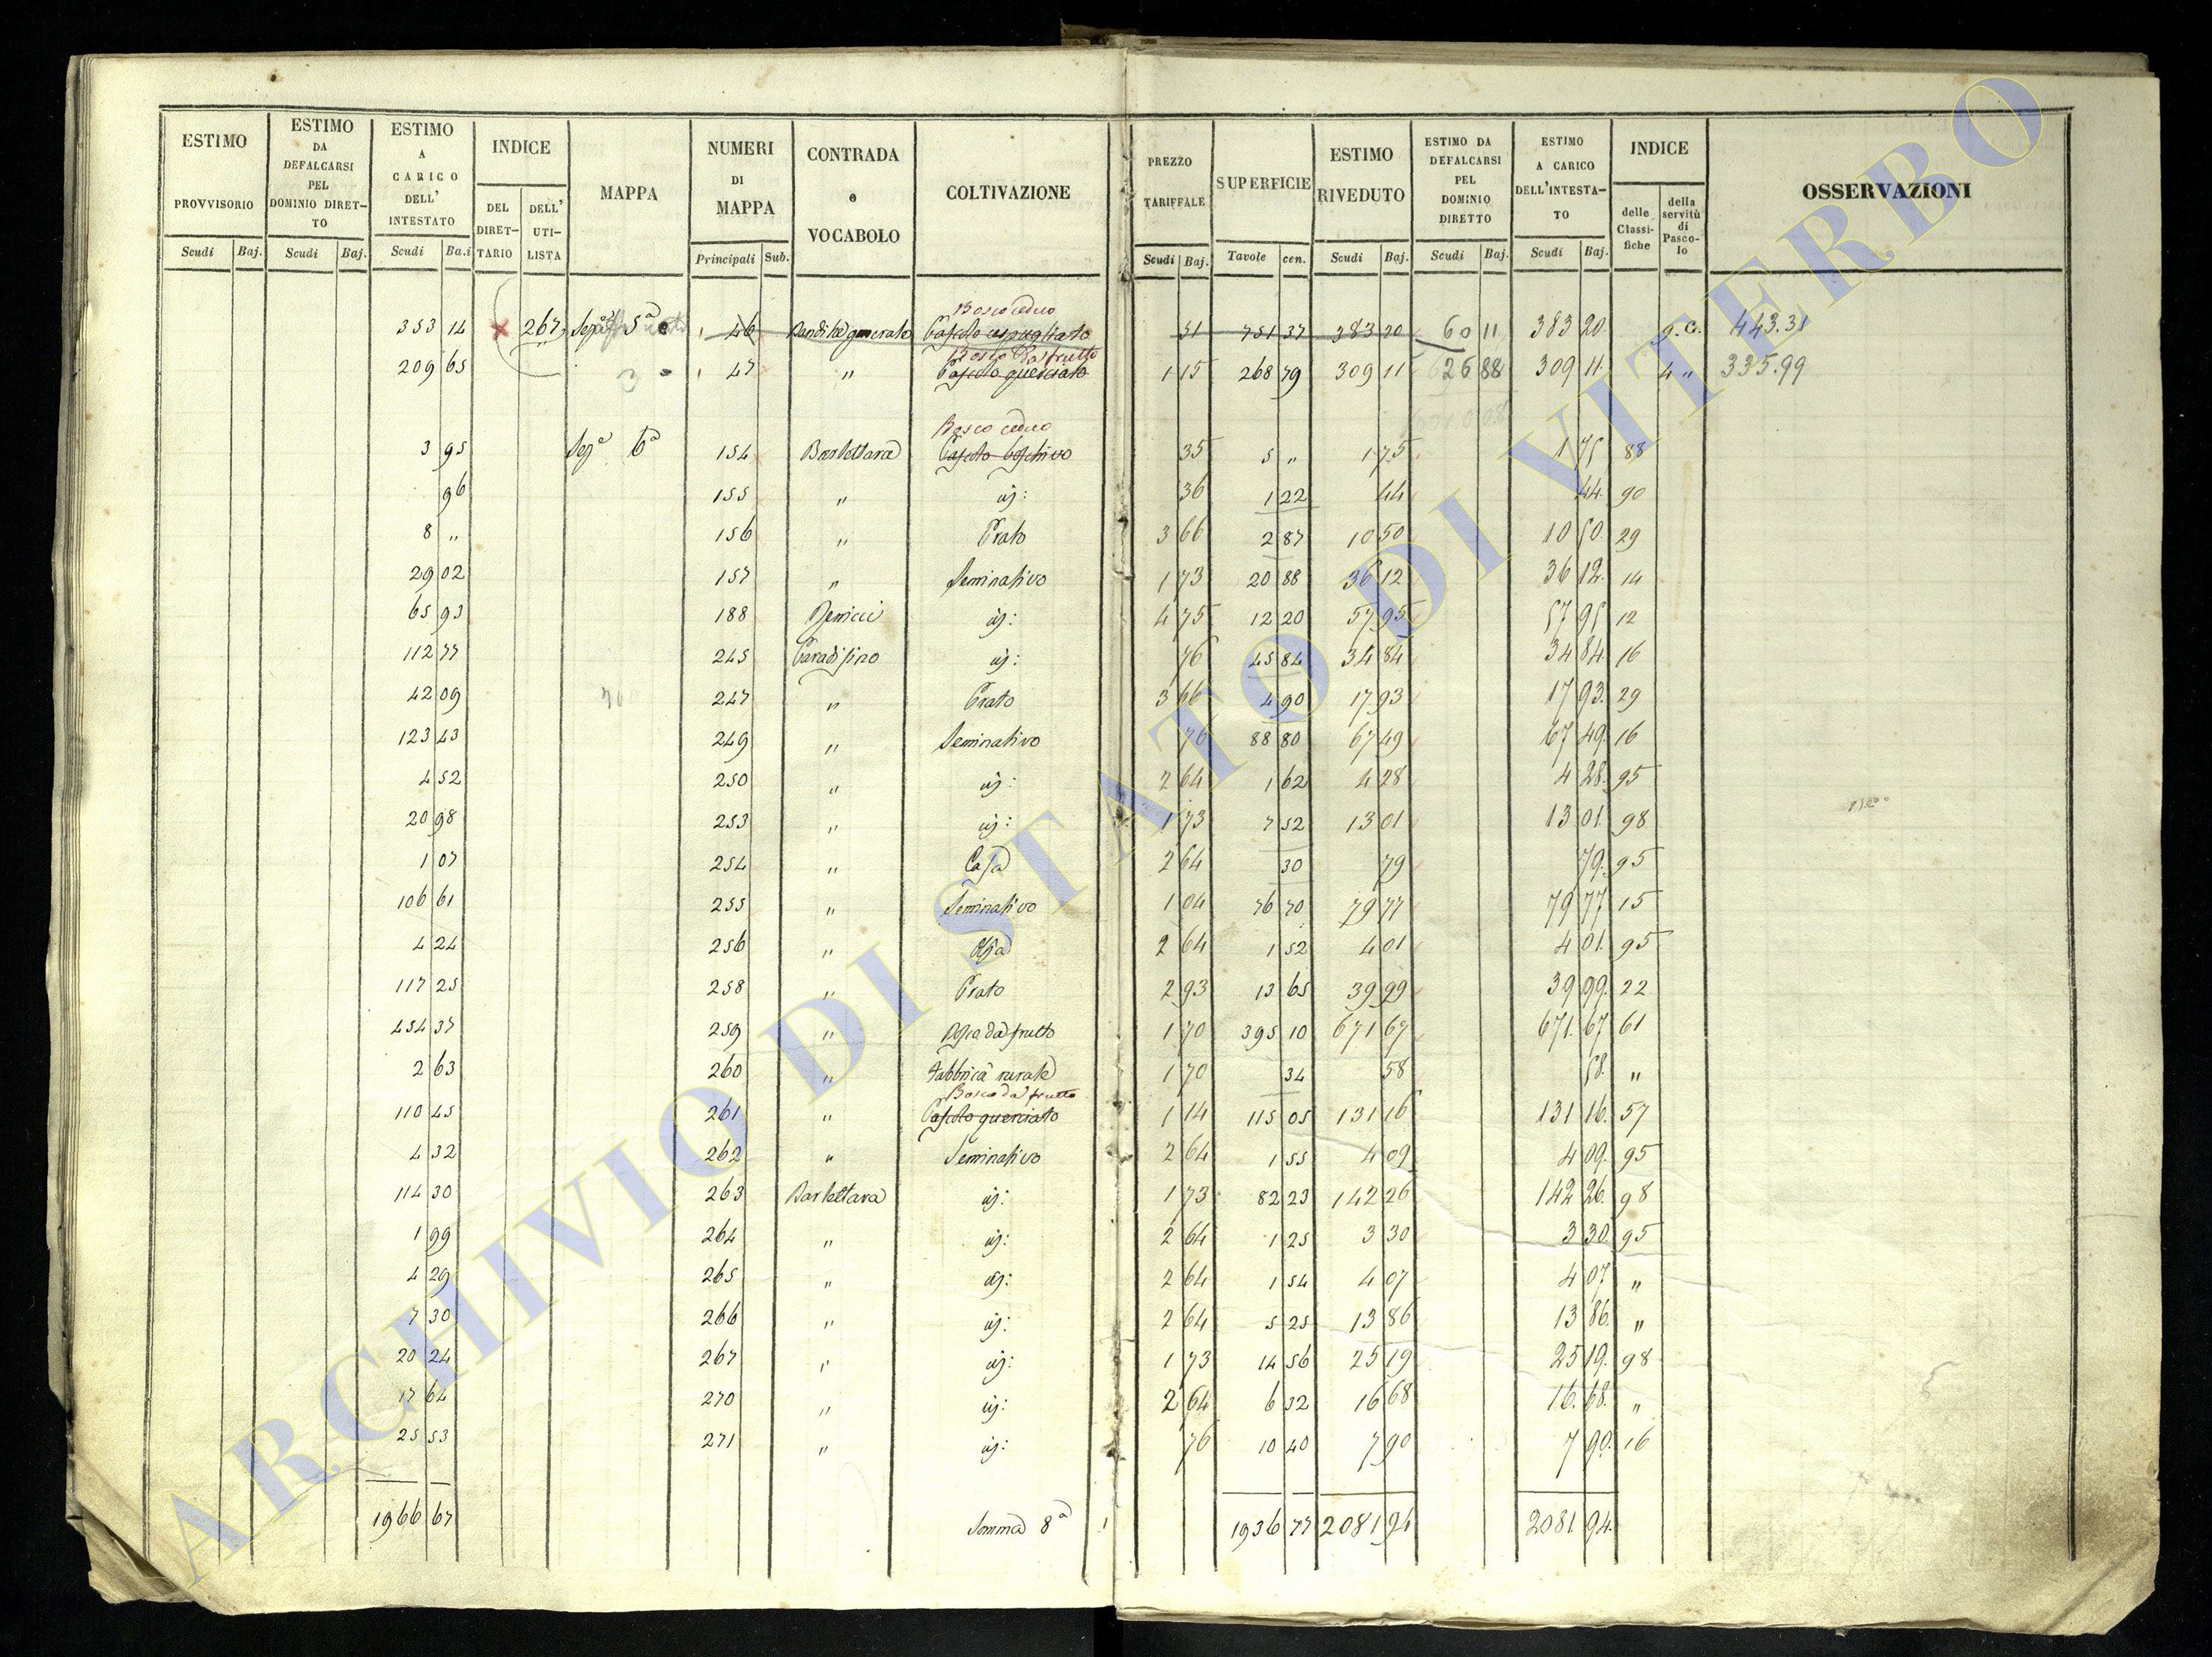 ESTIMO PROVVISORIO Scudi Baj.
ESTIMO DA DEFALCARSI PEL DOMINIO DIRET-TO Scudi Baj.
ESTIMO A CARICO DELL' INTESTATO Scudi Ba.i
INDICE DEL DIRET-TARIO DELL' UTI-LISTA
MAPPA
NUMERI DI MAPPA Principali Sub.
CONTRADA e VOCABOLO
COLTIVAZIONE
PREZZO TARIFFALE Scudi Baj.
SUPERFICIE Tavole cen.
ESTIMO RIVEDUTO Scudi Baj.
ESTIMO DA DEFALCARSI PEL DOMINIO DIRETTO Scudi Baj.
ESTIMO A CARICO DELL'INTESTA-TO Scudi Baj.
INDICE delle Classi-fiche della servitù di Pasco-lo
OSSERVAZIONI
Bosco ceduo
353 14 267 Sez.e 5a 46 Bandita generale Pascolo cespugliato 51 751 37 383 20 60 11 383 20 g.c. 443.31
Bosco da frutto
209 65 3 47 " Pascolo querciato 1 15 268 79 309 11 26 88 309 11 4 " 335.99
Bosco ceduo
3 95 Sez.e 6a 154 Barlettara Pascolo boschivo 35 5 " 1 75 1 75 88
96 155 " id: 36 1 22 44 44 90
8 " 156 " Prato 3 66 2 87 10 50 10 50 29
29 02 157 " Seminativo 1 73 20 88 36 12 36 12 14
65 93 188 id: 4 75 12 20 57 95 57 95 12
112 77 245 Paradisino id: 76 45 84 34 84 34 84 16
42 09 247 " Prato 3 66 4 90 17 93 17 93 29
123 43 249 " Seminativo 76 88 80 67 49 67 49 16
4 52 250 " id: 2 64 1 62 4 28 4 28 95
20 98 253 " id: 1 73 7 52 13 01 13 01 98
1 07 254 " Casa 2 64 30 79 79 95
106 61 255 " Seminativo 1 04 76 70 79 77 79 77 15
4 24 256 " 2 64 1 52 4 01 4 01 95
117 25 258 " Prato 2 93 13 65 39 99 39 99 22
454 37 259 " da frutto 1 70 395 10 671 67 671 67 61
2 63 260 " Fabbrica rurale 1 70 34 58 58 "
Bosco da frutto
110 45 261 " Pascolo querciato 1 14 115 05 131 16 131 16 57
4 32 262 " Seminativo 2 64 1 55 4 09 4 09 95
114 30 263 Barlettara id: 1 73 82 23 142 26 142 26 98
1 99 264 " id: 2 64 1 25 3 30 3 30 95
4 29 265 " id: 2 64 1 54 4 07 4 07 "
7 30 266 " id: 2 64 5 25 13 86 13 86 "
20 24 267 " id: 1 73 14 56 25 19 25 19 98
17 64 270 " id: 2 64 6 32 16 68 16 68 "
25 53 271 " id: 76 10 40 7 90 7 90 16
1966 67 Somma 8a 1936 77 2081 94 2081 94
ARCHIVIO DI STATO DI VITERBO